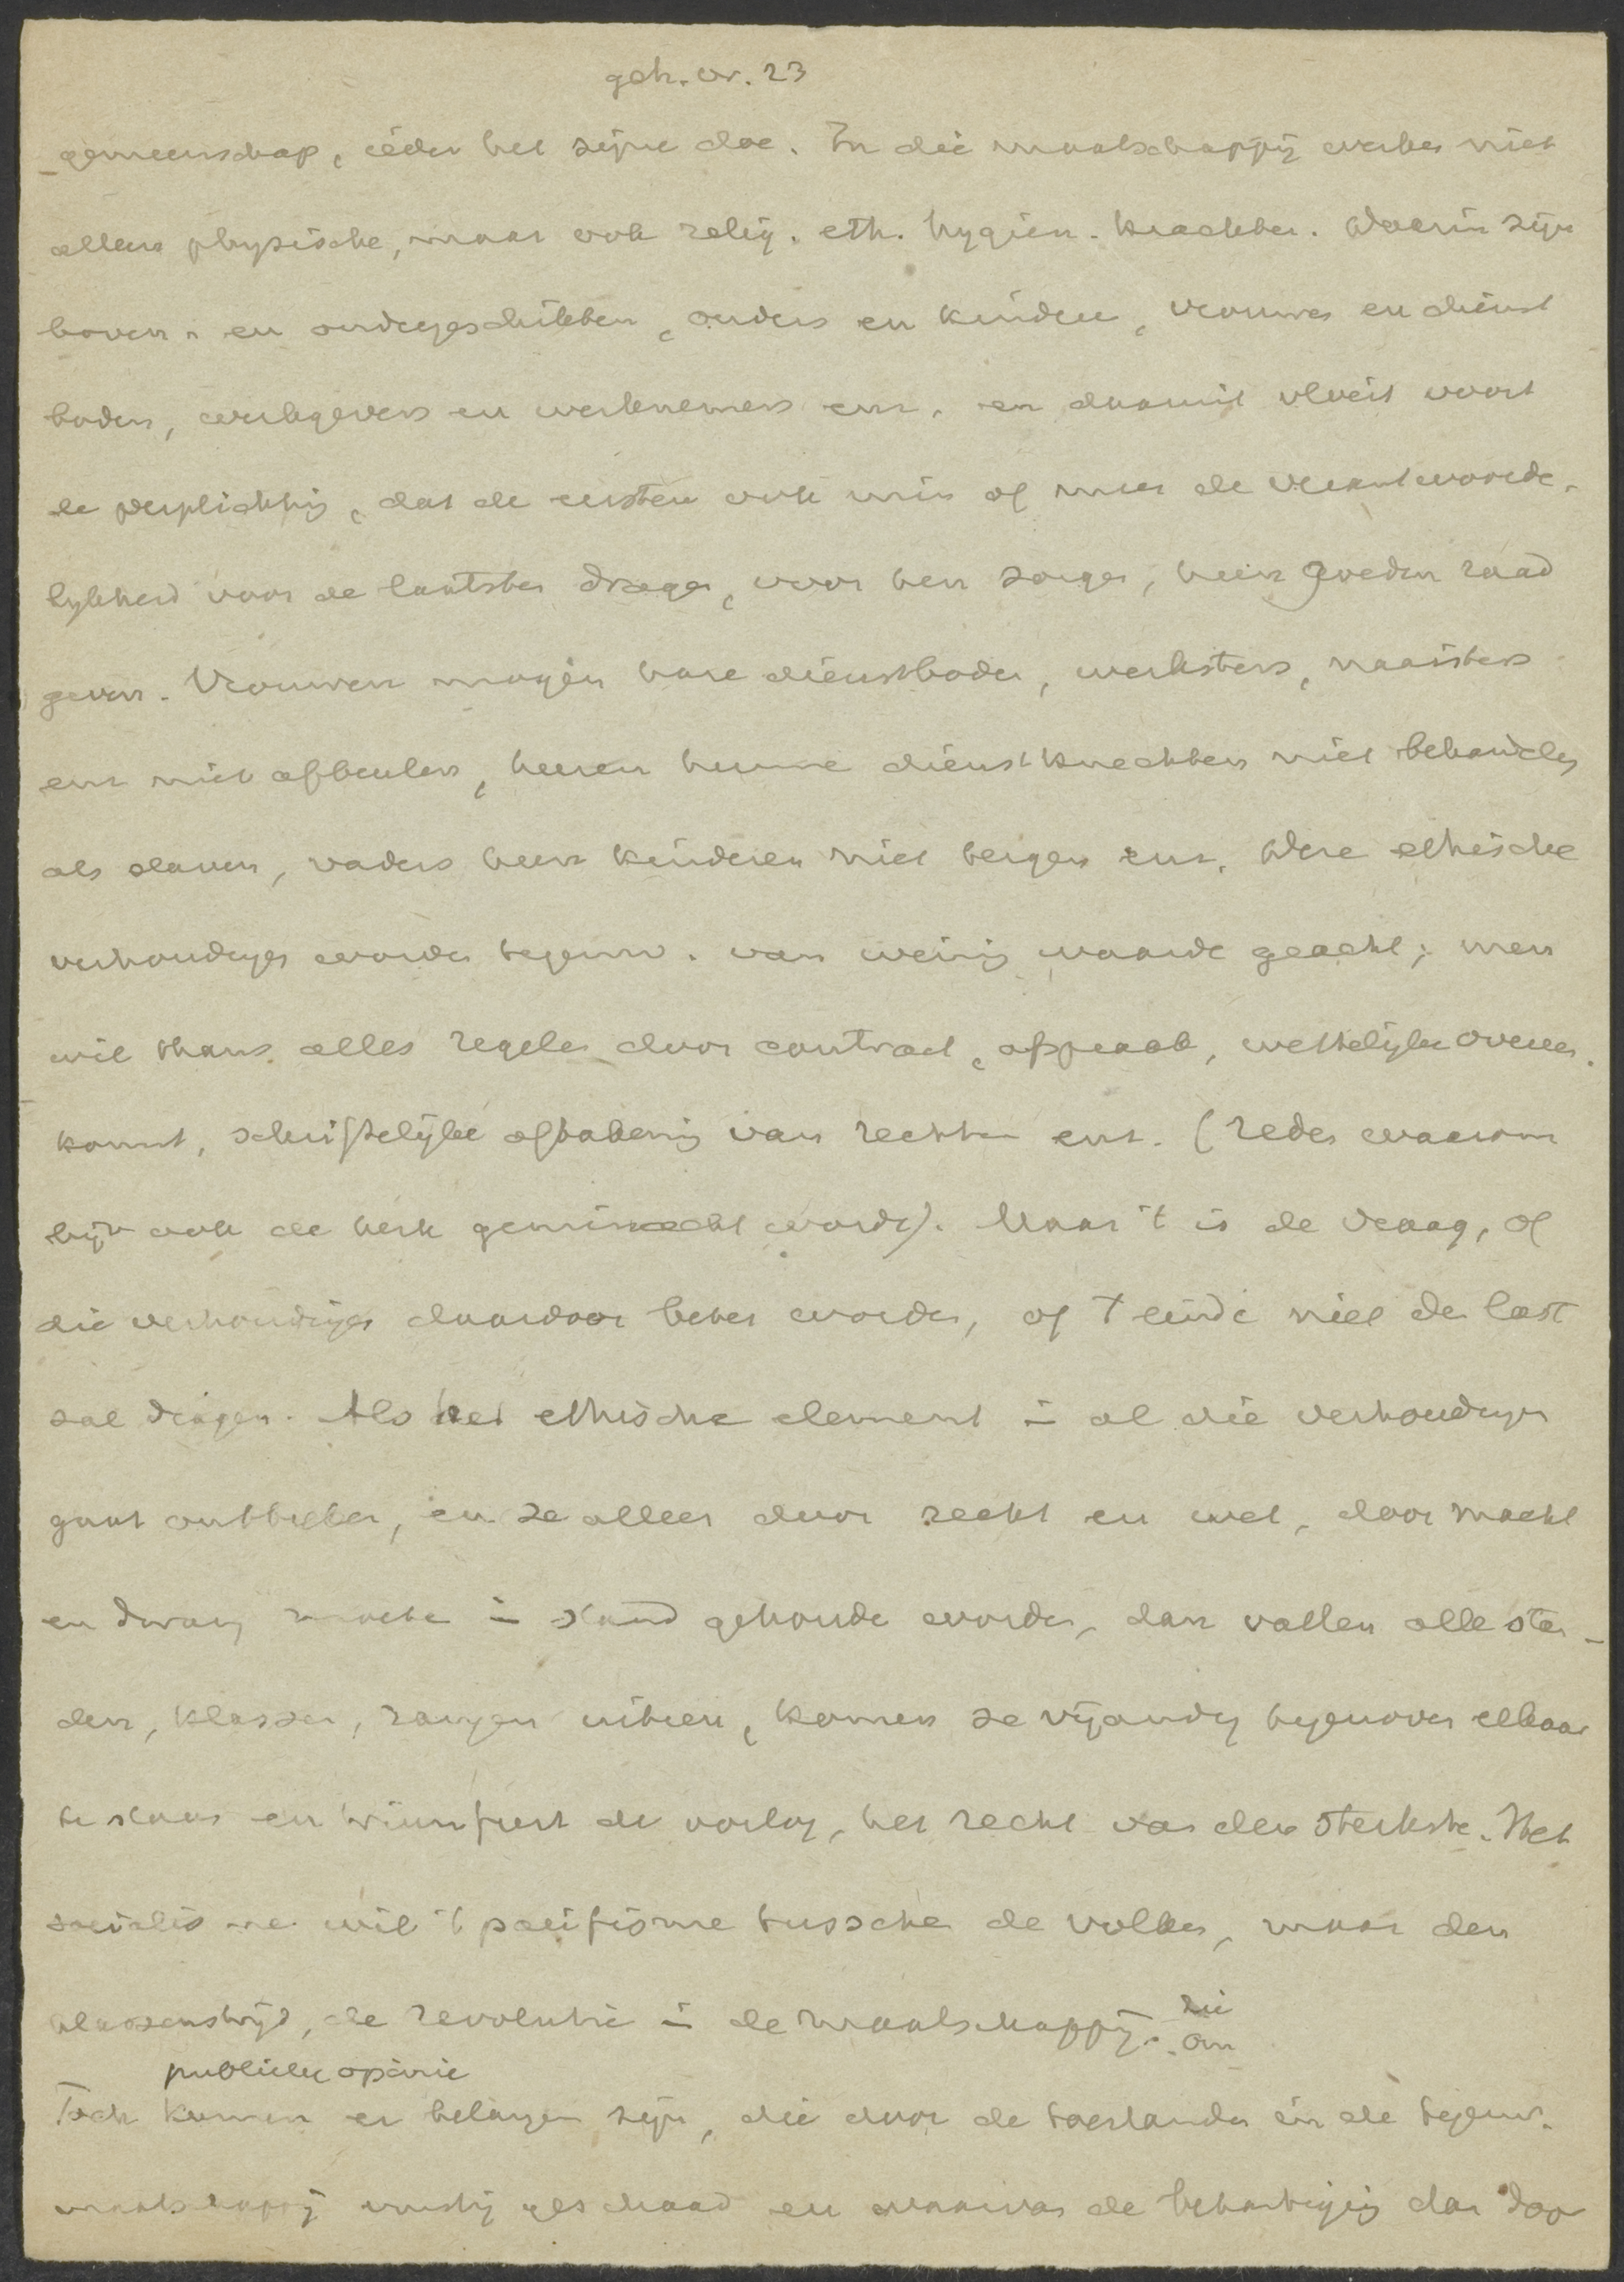 geh. ver. 23
gemeenschap, ieder het zijne doe. In die maatschappij werken niet
alleen physische, maar ook relig. eth. hygiën. krachten. Daarin zijn
boven- en ondergeschikten, ouders en kinderen, vrouwen en dienst
boden, werkgevers en werknemers enz. en daaruit vloeit voort
de verplichting, dat de eersten ook min of meer de verantwoorde-
lijkheid voor de laatsten dragen, voor hen zorgen, hun goeden raad
geven. Vrouwen mogen hare dienstboden, werksters, naaisters
enz niet afbeulen, heeren hunne dienstknechten niet behandelen
als slaven, vaders hun kinderen niet tergen enz. Deze ethische
verhoudingen worden tegenw. van weinig waarde geacht; men
wil thans alles regelen door contract, afspraak, wettelijke overeen
komst, schriftelijke afbakening van rechten enz. (reden waarom
bijv ook de kerk geminacht wordt). Maar 't is de vraag, of
die verhoudingen daardoor beter worden, of 't einde niet de last
zal dragen. Als het ethische element in al die verhoudingen
gaat ontbreken, en ze alleen door recht en wet, door macht
en dwang moeten in stand gehouden worden, dan vallen alle stan-
den, klassen, rangen uiteen, komen ze vijandig tegenover elkaar
te staan en triumfeert de oorlog, het recht van den sterkste. Het
socialisme wil 't pacifisme tusschen de volken, maar den
klassenstrijd, de revolutie in de maatschappij. zie
om
publieke opinie
Toch kunnen er belangen zijn, die door de toestanden in de tegenw.
maatschappij ernstig geschaad en waarvan de behartiging dan door